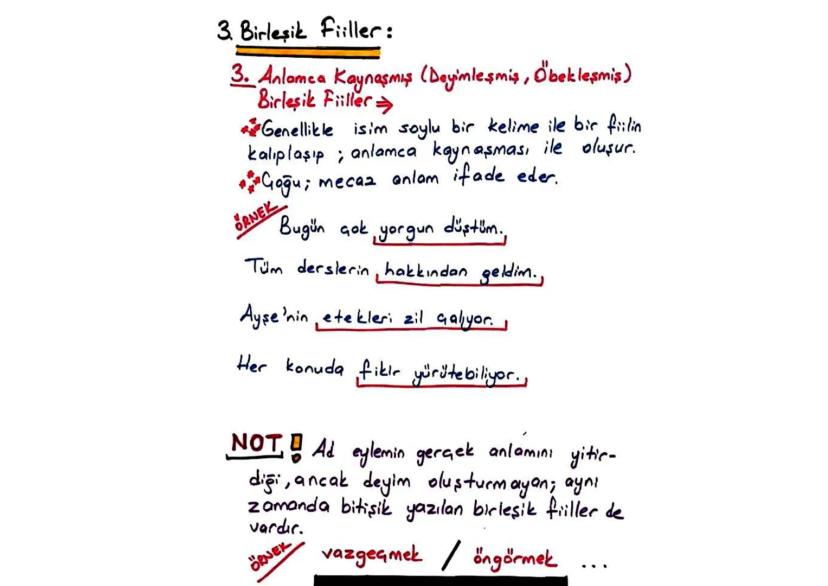 3. Birleşik Fiiller:
3. Anlamca Kaynaşmış (Deyimleşmiş, Öbekleşmiş)
Birleşik Fiiller →
Genellikle isim soylu bir kelime ile bir fiilin
kalıplaşıp ; anlamca kaynaşması ile oluşur.
Çoğu; mecaz anlam ifade eder.
ÖRNEK
Bugün çok yorgun düştüm.
Tüm derslerin hakkından geldim.
Ayşe'nin etekleri zil çalıyor.
Her konuda fikir yürütebiliyor.
NOT ! Ad eylemin gerçek anlamını yitir-
diği, ancak deyim oluşturmayan; aynı
zamanda bitişik yazılan birleşik fiiller de
vardır.
ÖRNEK vazgeçmek / öngörmek ...